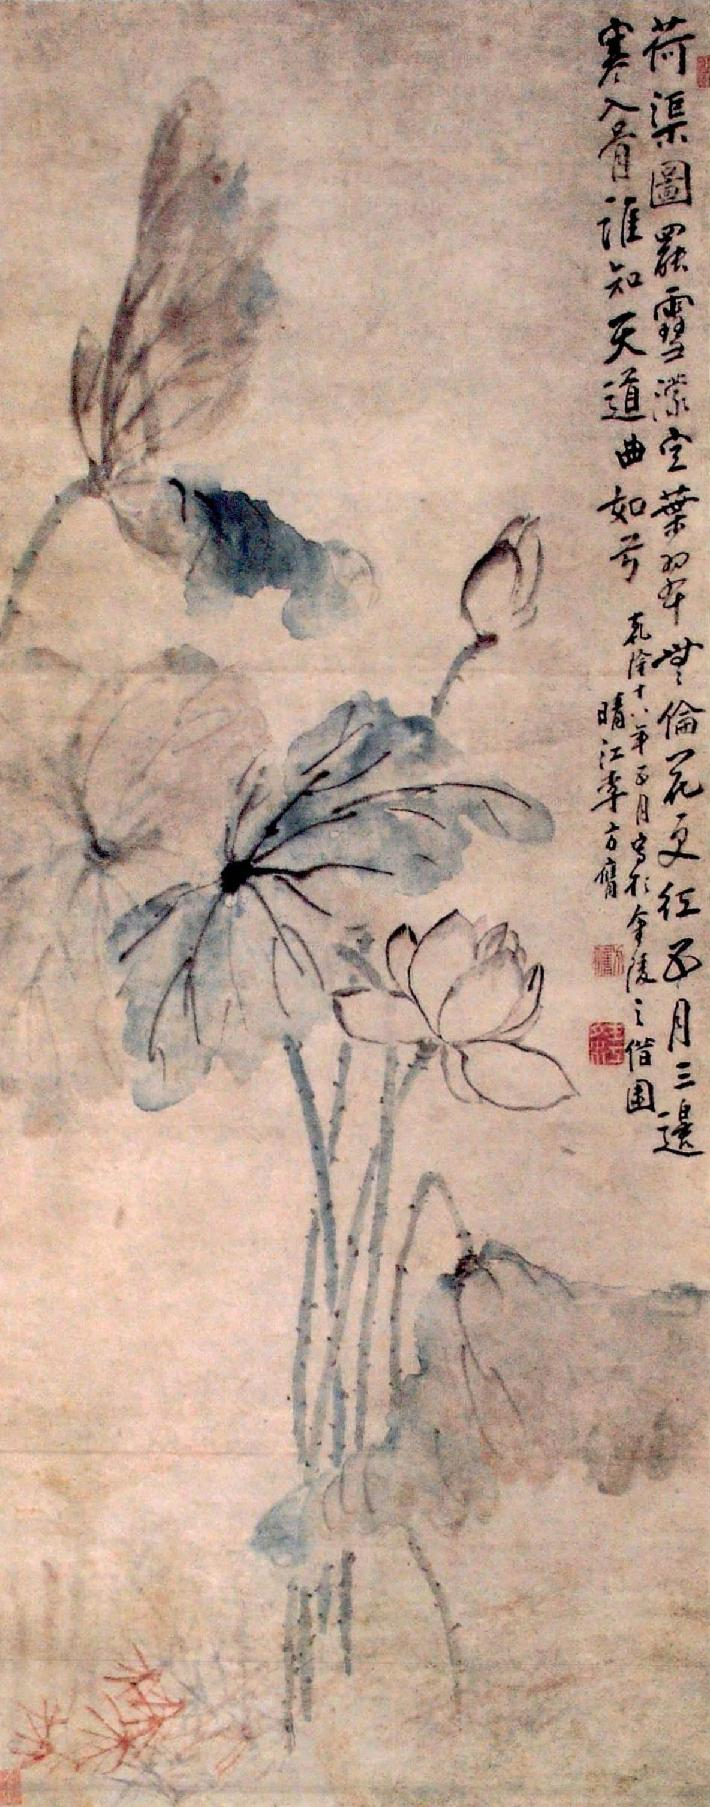 荷渠圖罷雪濛空葉翠花更紅正月三邊
寒入骨誰知天道曲如弓
乾隆十八年正月寫於金陵之借園
晴江李方膺